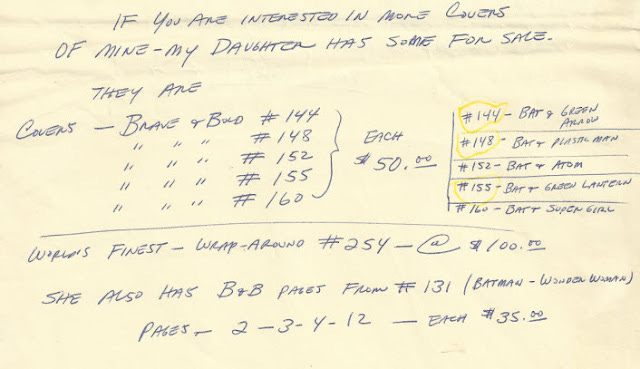 IF YOU ARE INTERESTED IN MORE COVERS
OF MINE - MY DAUGHTER HAS SOME FOR SALE.
THEY ARE
COVERS - BRAVE & BOLD # 144
" " " # 148
" " " # 152
" " " # 155
" " " # 160
EACH
$50.00
#144 - BAT & GREEN
ARROW
#148 - BAT & PLASTIC MAN
#152 - BAT & ATOM
#155 - BAT & GREEN LANTERN
#160 - BAT & SUPER GIRL
WORLD'S FINEST - WRAP-AROUND #254 - @ $100.00
SHE ALSO HAS B&B PAGES FROM # 131 (BATMAN - WONDER WOMAN)
PAGES - 2 - 3 - 4 - 12 - EACH $35.00